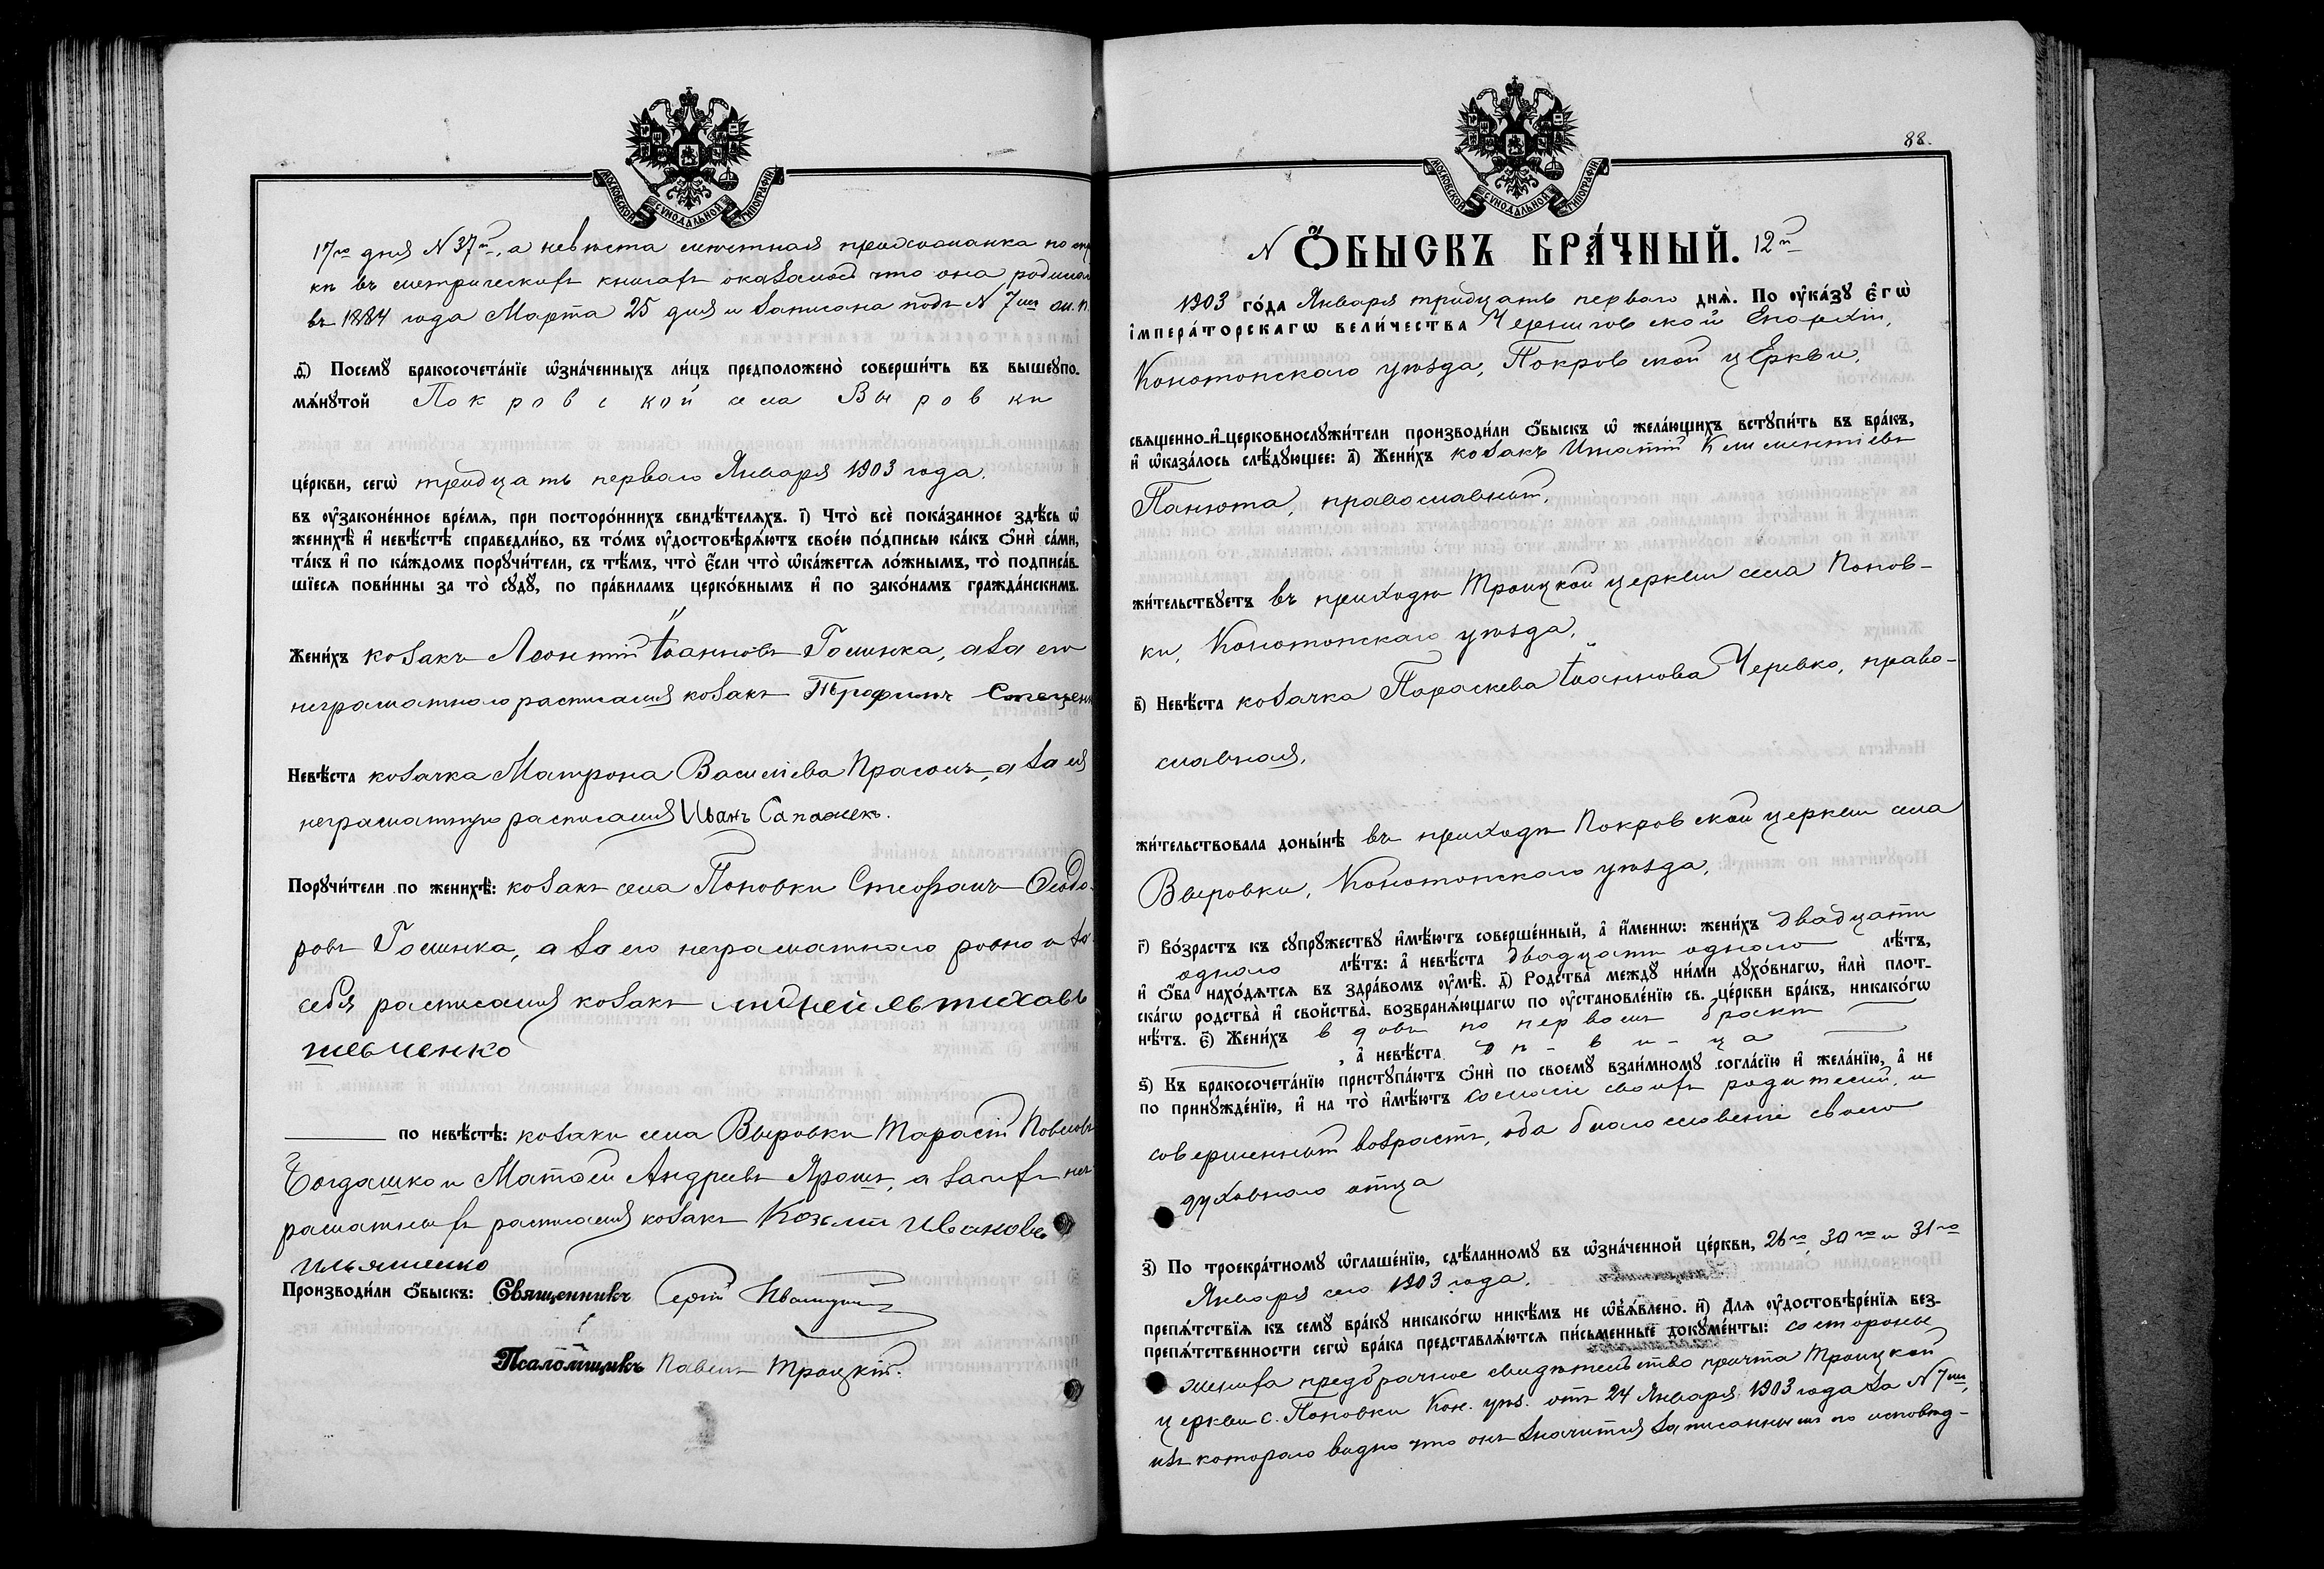 МОСКОВСКОЙ СѴНОДАЛЬНОЙ ТИПОГРАФІИ
17го дня N 37й, а невѣста мѣстная прихожанка по
ки въ метрическихъ книгахъ оказалось что она родилась
въ 1884 года Марта 25 дня и записана подъ N 7мъ
д҃) Посемꙋ бракосочета́нїе ѡ҆зна́ченныхъ ли́цъ предположено̀ соверши́ть въ вышеꙋпо-
мѧ́нꙋтой Покровской села Выровки
це́ркви, сегѡ̀ тридцать перваго Января 1903 года.
въ ᲂу҆законе́нное вре́мѧ, при посторо́ннихъ свидѣ́телѧхъ. і҃) Что̀ всѐ пока́занное здѣ́сь ѡ҆
женихѣ̀ и҆ невѣ́стѣ справедли́во, въ то́мъ ᲂу҆достовѣрѧ́ютъ свое́ю по́дписью ка́къ ѻ҆нѝ са́ми,
та́къ и҆ по ка́ждомъ порꙋчи́тели, съ тѣ́мъ, что̀ є҆́сли что̀ ѡ҆ка́жетсѧ ло́жнымъ, то̀ подписа́в-
шїесѧ пови́нны за то̀ сꙋдꙋ̀, по пра́виламъ церко́внымъ и҆ по зако́намъ гражда́нскимъ.
Жени́хъ козакъ Леонтій Іоанновъ Гоминка, а за его
неграмотнаго росписался козакъ Трофимъ Стецен
Невѣ́ста козачка Матрона Васильева Прасолъ, а за ея
неграмотную росписался Иванъ Сапожекъ.
Порꙋчи́тели по женихѣ̀: козакъ села Поповки Стефанъ Ѳеодо-
ровъ Гоминка, а за его неграмотнаго ровно и за
себя росписался козакъ Андрей Евтиховъ
шевченко
по невѣ́стѣ: козаки села Выровки Тарасій Павловъ
Богдашко и Матѳей Андреевъ Ярошъ, а за ихъ не
рамотныхъ росписался козакъ Козьма Ивановъ
ильяшенко
Производи́ли ѻ҆́быскъ: Священникъ Сергій
Псаломщикъ Павелъ Троицкій.
88.
МОСКОВСКОЙ СѴНОДАЛЬНОЙ ТИПОГРАФІИ
N Ѻ҆́БЫСКЪ БРА́ЧНЫЙ. 12й
1903 го́да Января тридцать перваго днѧ̀. По ᲂу҆ка́зꙋ є҆гѡ̀
і҆мпера́торскагѡ вели́чества Черниговской Епархіи,
Конотопскаго уѣзда, Покровской церкви,
свѧще́нно-и҆-церковнослꙋжи́тели производи́ли ѻ҆́быскъ ѡ҆ жела́ющихъ встꙋпи́ть въ бра́къ,
и҆ ѡ҆каза́лось слѣ́дꙋющее: а҃) Жени́хъ козакъ Игнатій Климентіевъ
Панюта, православный,
жи́тельствꙋетъ въ приходѣ Троицкой церкви села Попов-
ки, Конотопскаго уѣзда,
в҃) Невѣ́ста козачка Параскева Іоаннова Черевко, право-
славная,
жи́тельствовала донн́нѣ въ приходѣ Покровской церкви села
Выровки, Конотопскаго уѣзда,
г҃) Во́зрастъ къ сꙋпрꙋ́жествꙋ и҆мѣ́ютъ соверше́нный, а҆ и҆́меннѡ: жени́хъ двадцати
одного лѣ́тъ: а҆ невѣ́ста двадцати одного лѣ́тъ,
и҆ ѻ҆́ба нахо́дѧтсѧ въ здра́вомъ ᲂу҆мѣ̀. д҃) Родства̀ междꙋ̀ ни́ми дꙋхо́внагѡ, и҆лѝ пло́т-
ска́гѡ родства̀ и҆ сво́йства̀, возбранѧ́ющагѡ по ᲂу҆становле́нїю св. це́ркви бра́къ, никако́гѡ
нѣ́тъ. є҃) Жени́хъ вдовъ по первомъ бракѣ
, а҆ невѣ́ста дѣ-ви-ца
ѕ҃) Къ бракосочета́нїю пристꙋпа́ютъ ѻ҆нѝ по своемꙋ̀ взаи́мномꙋ согла́сїю и҆ жела́нїю, а҆ не
по принꙋжде́нїю, и҆ на то̀ и҆мѣ́ютъ согласіе своихъ родителей, и
совершенный возрастъ, оба благословеніе своего
духовнаго отца
з҃) По троекра́тномꙋ ѡ҆глаше́нїю, сдѣ́ланномꙋ въ ѡ҆зна́ченной це́ркви, 26го, 30го и 31го
Января сего 1903 года.
препѧ́тствїѧ къ семꙋ̀ бра́кꙋ никако́гѡ никѣ́мъ не ѡ҆б̾ѧ́влено. и҃) Длѧ ᲂу҆достовѣре́нїѧ без-
препѧ́тственности сегѡ̀ бра́ка представлѧ́ютсѧ пи́сьменные докꙋме́нты: со стороны
жениха предбрачное свидѣтельство причта Троицкой
церкви с. Поповки Кон. уѣз. отъ 24 Января 1903 года за N 7мъ,
изъ котораго видно что онъ значится записаннымъ по исповѣд-